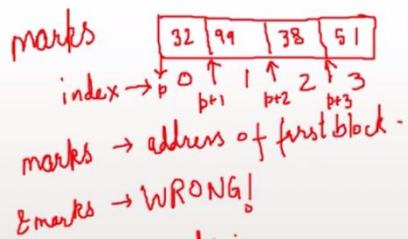 marks 32 99 38 51
index → p 0 1 2 3
p+1 p+2 p+3
marks → address of first block.
&marks → WRONG!